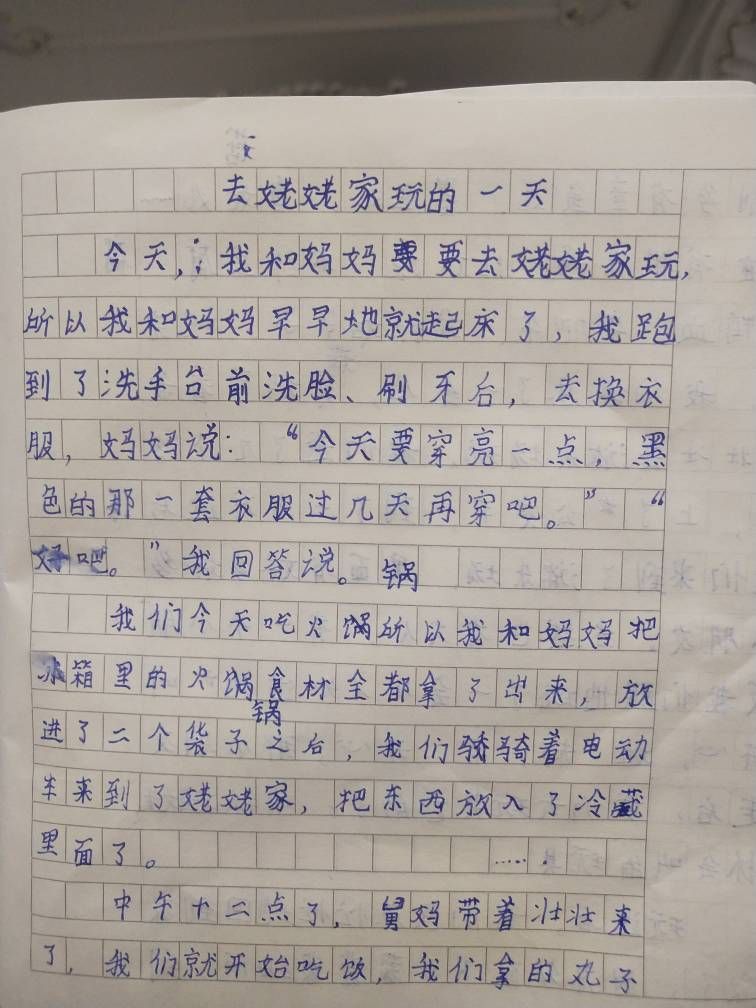 去姥姥家玩的一天
今天,我和妈妈要去姥姥家玩,
所以我和妈妈早早地就起床了，我跑
到了洗手台前洗脸、刷牙后，去换衣
服，妈妈说：“今天要穿亮一点，黑
色的那一套衣服过几天再穿吧。”“
好吧。”我回答说。
锅
我们今天吃火锅所以我和妈妈把
冰箱里的火锅食材全都拿了出来，放
锅
进了二个袋子之后，我们骑着电动
车来到了姥姥家，把东西放入了冷藏
里面了。
中午十二点了，舅妈带着壮壮来
了，我们就开始吃饭，我们拿的丸子